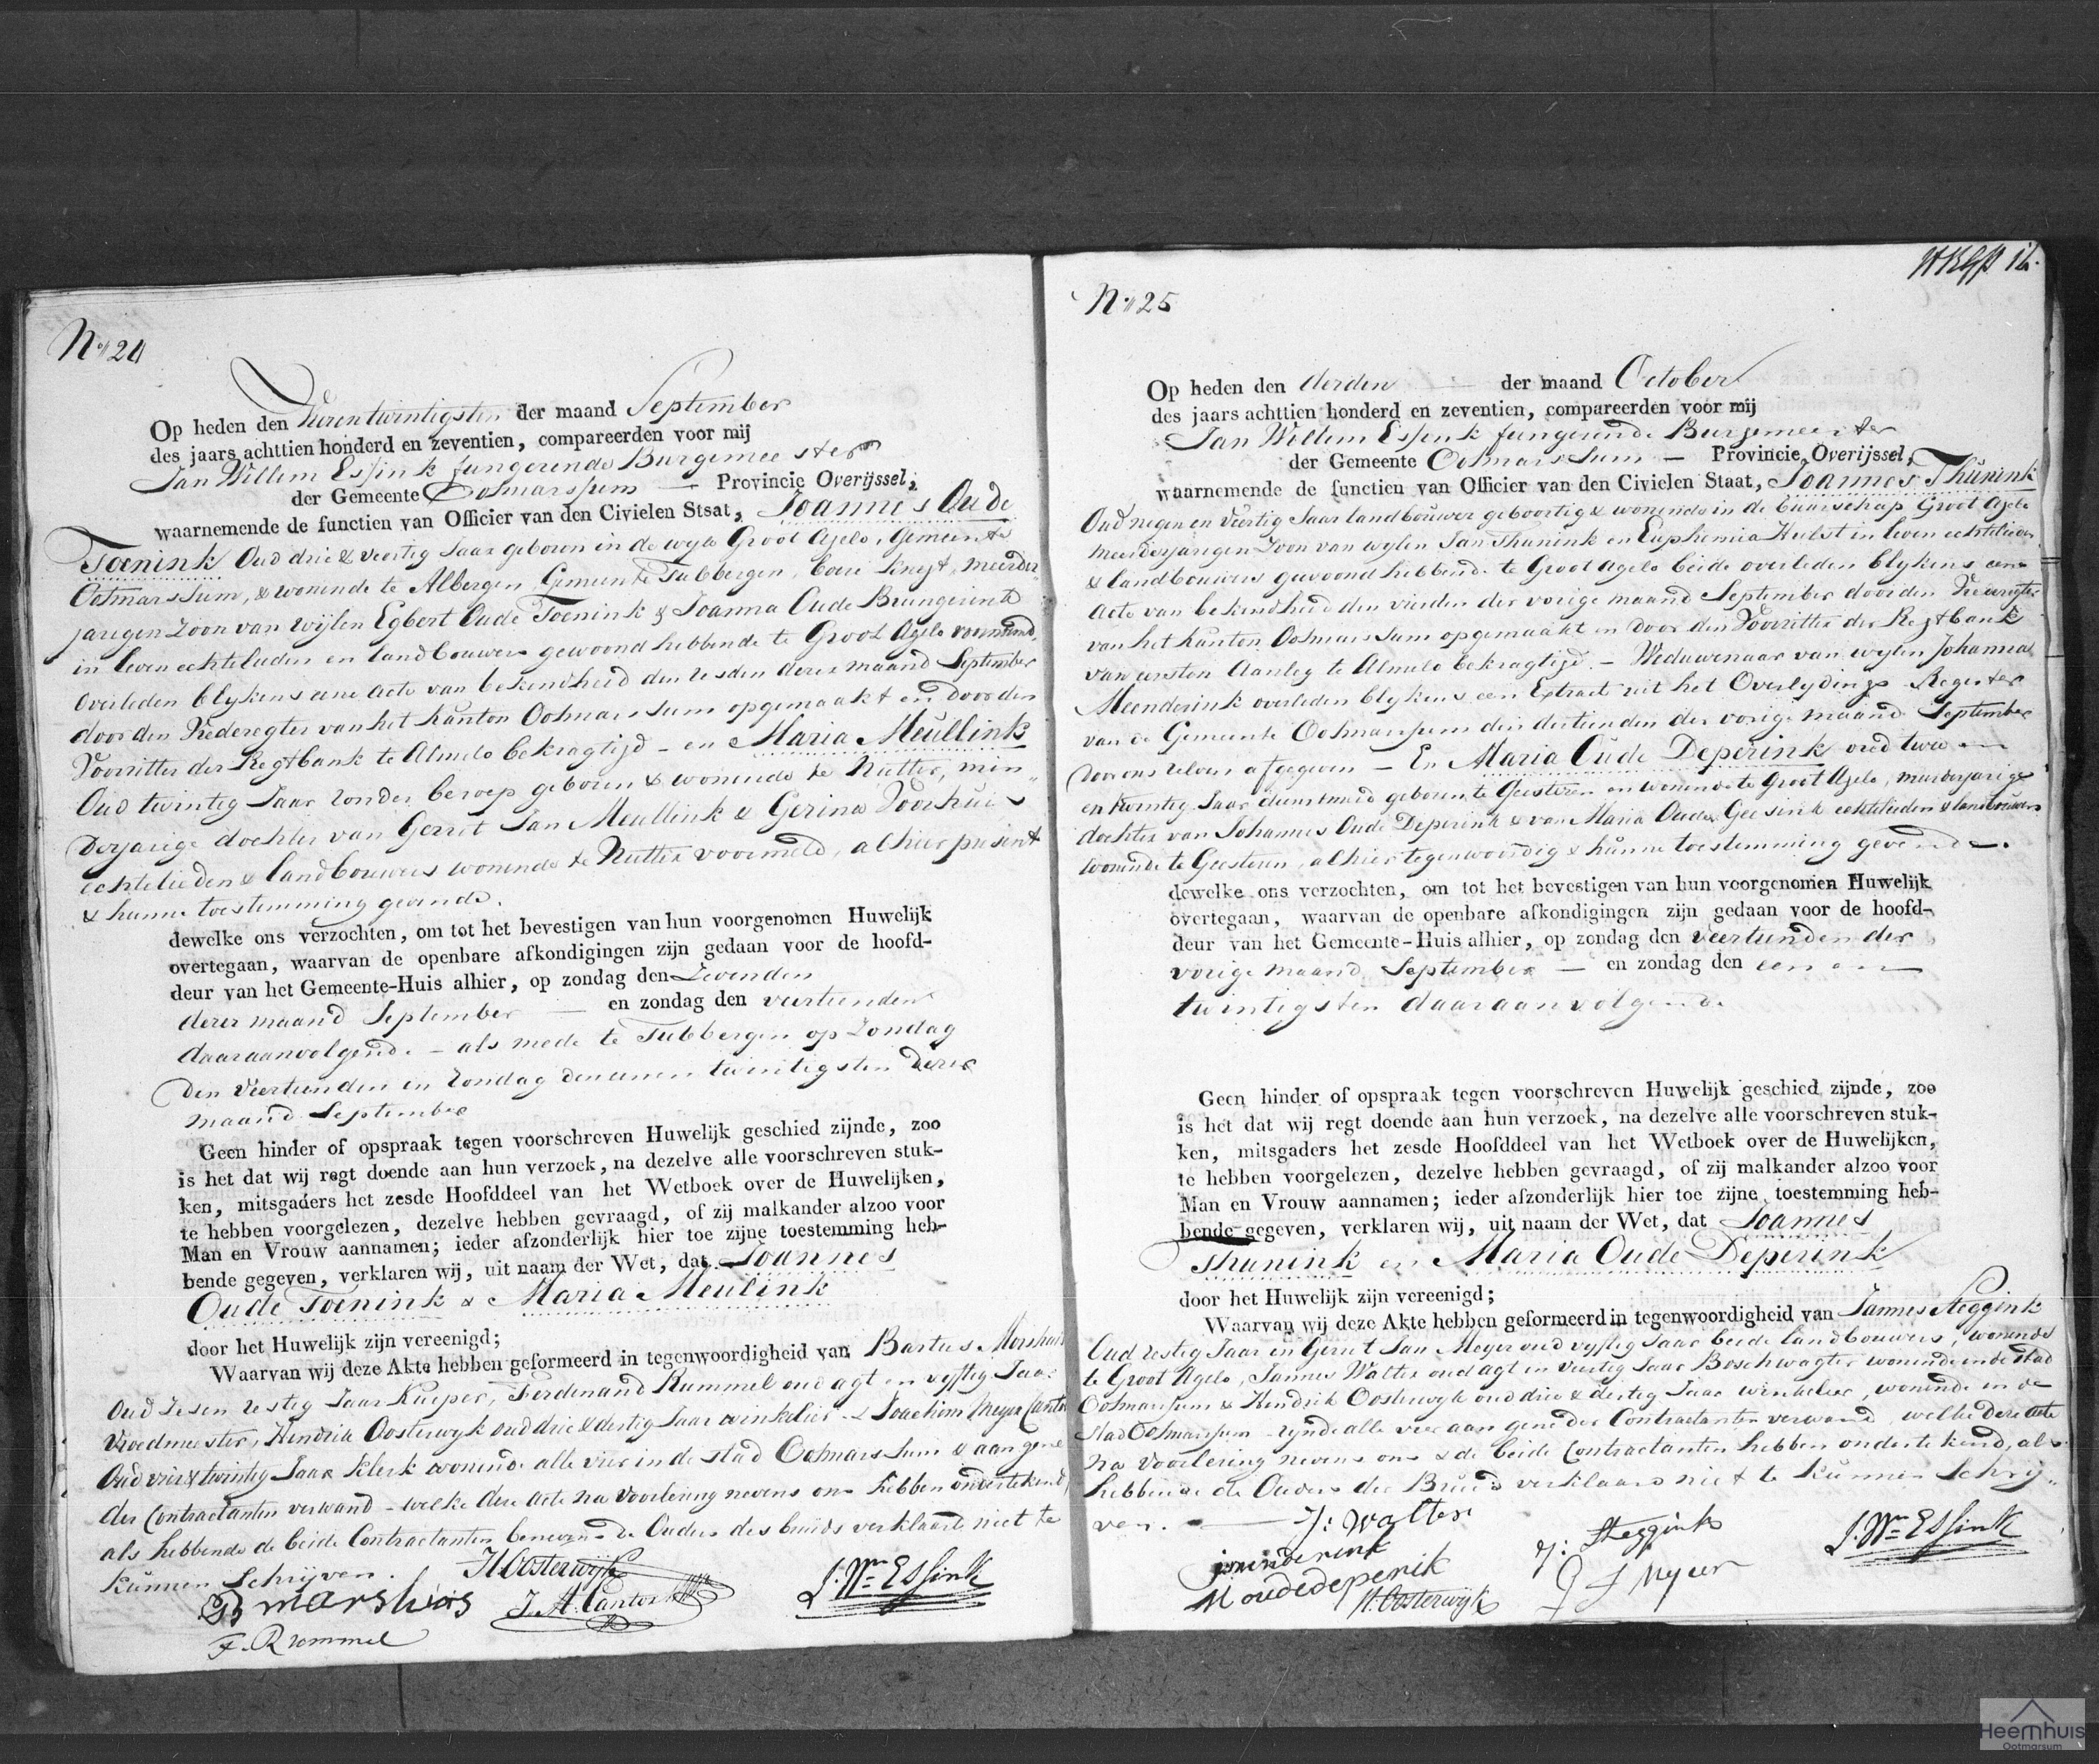 No 24
Op heden den Vierentwintigsten der maand September
des jaars achttien honderd en zeventien, compareerden voor mij
Jan Willem Essink fungerende Burgemeester
der Gemeente Ootmarssum — Provincie Overijssel,
waarnemende de functien van Officier van den Civielen Stsat, Joannes Oude
Toenink Oud drie & veertig Jaar geboren in de wyk Groot Agelo, Gemeente
Ootmarssum, & wonende te Albergen Gemeente Tubbergen, boere knegt, meerder-
jarigen Zoon van wijlen Egbert Oude Toenink & Joanna Oude
in leven echtelieden en landbouwers gewoond hebbende te Groot Agelo voormeld,
Overleden blykens eene acte van bekendheid den zesden dezer maand September
door den Vrederegter van het Kanton Ootmarssum opgemaakt en door den
Voorzitter der Regtbank te Almelo bekragtigd – en Maria Meullink
Oud twintig Jaar zonder beroep geboren & wonende te Nutter, min-
Derjarige dochter van Gerrit Jan Meullink & Gerina Voorhuis
echtelieden & landbouwers wonende te Nutter voormeld, alhier present
& hunne toestemming gevende.
dewelke ons verzochten, om tot het bevestigen van hun voorgenomen Huwelijk
overtegaan, waarvan de openbare afkondigingen zijn gedaan voor de hoofd-
deur van het Gemeente-Huis alhier, op zondag den Zevenden
dezer maand September — en zondag den veertienden
daaraanvolgende. – als mede te Tubbergen op Zondag
Den Veertienden en Zondag den eenen twintigsten dezer
maand September
Geen hinder of opspraak tegen voorschreven Huwelijk geschied zijnde, zoo
is het dat wij regt doende aan hun verzoek, na dezelve alle voorschreven stuk-
ken, mitsgaders het zesde Hoofddeel van het Wetboek over de Huwelijken,
te hebben voorgelezen, dezelve hebben gevraagd, of zij malkander alzoo voor
Man en Vrouw aannamen; ieder afzonderlijk hier toe zijne toestemming heb-
bende gegeven, verklaren wij, uit naam der Wet, dat Joannes
Oude Toenink & Maria Meulink
door het Huwelijk zijn vereenigd;
Waarvan wij deze Akte hebben geformeerd in tegenwoordigheid van Bartus Morshuis
Oud Zesen zestig Jaar Kuiper, Ferdinand Rummel oud agt en vyftig Jaar
Vroedmeester, Hendrik Oosterwyk oud drie & dertig Jaar winkelier & Joachim Meyer Cantor
Oud vier & twintig Jaar klerk wonende alle vier in de stad Ootmarssum & aan gene
der Contractanten verwand – welke deze acte na voorlezing nevens ons hebben ondertekend,
als hebbende de beide Contractanten benevens de Ouders des bruids verklaard niet te
kunnen Schrijven.
H. Oosterwijk
B marshuis
J. M. Cantor
J. Wm Essink
F. Rrommel
No 25
Op heden den derden — der maand October
des jaars achttien honderd en zeventien, compareerden voor mij
Jan Willem Essink fungerende Burgemeester
der Gemeente Ootmarssum — Provincie Overijssel,
waarnemende de functien van Officier van den Civielen Staat, Joannes Thunink
Oud negen en Veertig Jaar landbouwer geboortig & wonende in de buurschap Groot Agelo
meerderjarigen Zoon van wylen Jan Thunink en Euphemia Hulst in leven echtelieden
& landbouwers gewoond hebbende te Groot Agelo beide overleden blykens eene
acte van bekendheid den vierden der vorige maand September door den Vrederegter
van het Kanton Ootmarssum opgemaakt en door den Voorzitter der Regtbank
van eersten Aanleg te Almelo bekragtigd. – Weduwenaar van wylen Johanna
Meenderink overleden blykens een Extract uit het Overlydings Register
van de Gemeente Ootmarssum den dertienden der vorige maand September
door ons zelven afgegeven – En Maria Oude Deperink oud twee en
en twintig Jaar dienstmeid geboren te Geesteren en wonende te Groot Agelo, meerderjarige
dochter van Johannes Oude Deperink & van Maria Oude Geesink echtelieden & landbouwers
wonende te Geesteren, alhier tegenwoordig & hunne toestemming gevende.
dewelke ons verzochten, om tot het bevestigen van hun voorgenomen Huwelijk
overtegaan, waarvan de openbare afkondigingen zijn gedaan voor de hoofd-
deur van het Gemeente-Huis alhier, op zondag den Veertienden der
vorige maand September — en zondag den een en
twintigsten daaraanvolgende.
Geen hinder of opspraak tegen voorschreven Huwelijk geschied zijnde, zoo
is het dat wij regt doende aan hun verzoek, na dezelve alle voorschreven stuk-
ken, mitsgaders het zesde Hoofddeel van het Wetboek over de Huwelijken,
te hebben voorgelezen, dezelve hebben gevraagd, of zij malkander alzoo voor
Man en Vrouw aannamen; ieder afzonderlijk hier toe zijne toestemming heb-
bende gegeven, verklaren wij, uit naam der Wet, dat Joannes
Thunink en Maria Oude Deperink
door het Huwelijk zijn vereenigd;
Waarvan wij deze Akte hebben geformeerd in tegenwoordigheid van Jannes Steggink
Oud zestig Jaar en Gerrit Jan Meyer oud vyftig Jaar beide landbouwers, wonende
te Groot Agelo, Jannes Walter oud agt en veertig Jaar Boschwagter wonende in de stad
Ootmarssum & Hendrik Oosterwyk oud drie & dertig Jaar winkelier, wonende in de
stad Ootmarssum – zynde alle vier aan gene der Contractanten verwand, welke deze acte
na voorlezing nevens ons & de beide Contractanten hebben ondertekend, als
hebbende de Ouders der Bruid verklaard niet te kunnen Schry-
ven. —
J: Walter
J: Steggink
J. Wm Essink
M oudedeperik
H. Oosterwijk
G J Meyer
Heemhuis
Ootmarsum